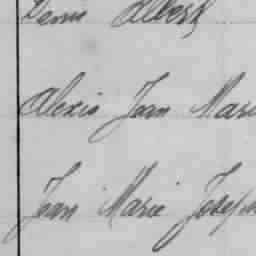 Denis Albert
Alexis Jean Mari
Jean Marie Joseph